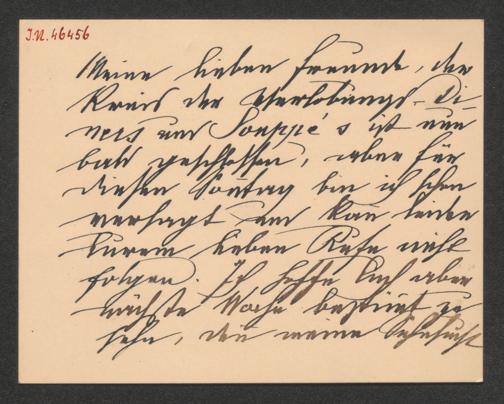 J.N. 46456
Meine lieben Freunde, der
Kreis der Verlobungs-Di-
ners und Souppé's ist nun
bald geschlossen, aber für
diesen Sontag bin ich schon
versagt und kan leider
Eurem lieben Rufe nicht
folgen. Ich hoffe Euch aber
nächste Woche bestimt zu
sehn, denn meine Sehnsucht